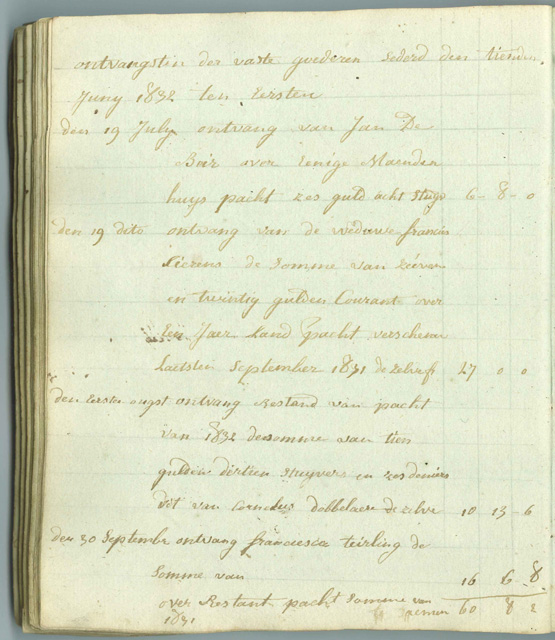 ontvangstin der vaste goederen sederd den tienden
Juny 1832 ten Eersten
den 19 July ontvang van Jan De
Beir over Eenige Maenden
huys pacht zes guld acht stuys 6 - 8 - 0
den 19 dito ontvang van de weduwe francis
Lierens de Somme van zeeven
en twintig gulden Courant over
Een Jaer Land pacht verschenen
Laetsten September 1831 dezelve 27 0 0
den Eersten ougst ontvang Restand van pacht
van 1832 de somme van tien
gulden dertien stuyvers en zes deniers
dit van Cornelus dobbelaere dezelve 10 13 - 6
den 30 Septembr ontvang franciesca teirling de
Somme van 16 6 8
over Restant pacht Somme van 60 8 2
1831